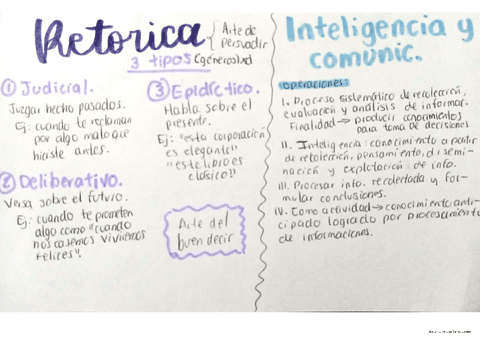 Retorica { Arte de
persuadir
3 tipos
① Judicial.
Juzgar hecho pasados.
Ej: cuando te reclaman
por algo malo que
hiciste antes.
② Deliberativo.
Versa sobre el futuro.
Ej: cuando te prometen
algo como "cuando
nos casemos viviremos
felices".
③ Epidíctico.
Habla sobre el
presente.
Ej: "esta corporación
es elegante"
"este libro es
clásico"
Arte del
buen decir
Inteligencia y
comunic.
operaciones:
I. Proceso sistemático de recolección,
evaluación y análisis de informar.
Finalidad → producir conocimientos
para toma de decisiones
II. Inteligencia: conocimiento a partir
de recolección, pensamiento, disemi-
nación y explotación de info.
III. Procesar info. recolectada y for-
mular conclusiones.
IV. Como actividad → conocimiento anti-
cipado logrado por procesamiento
de informaciones.